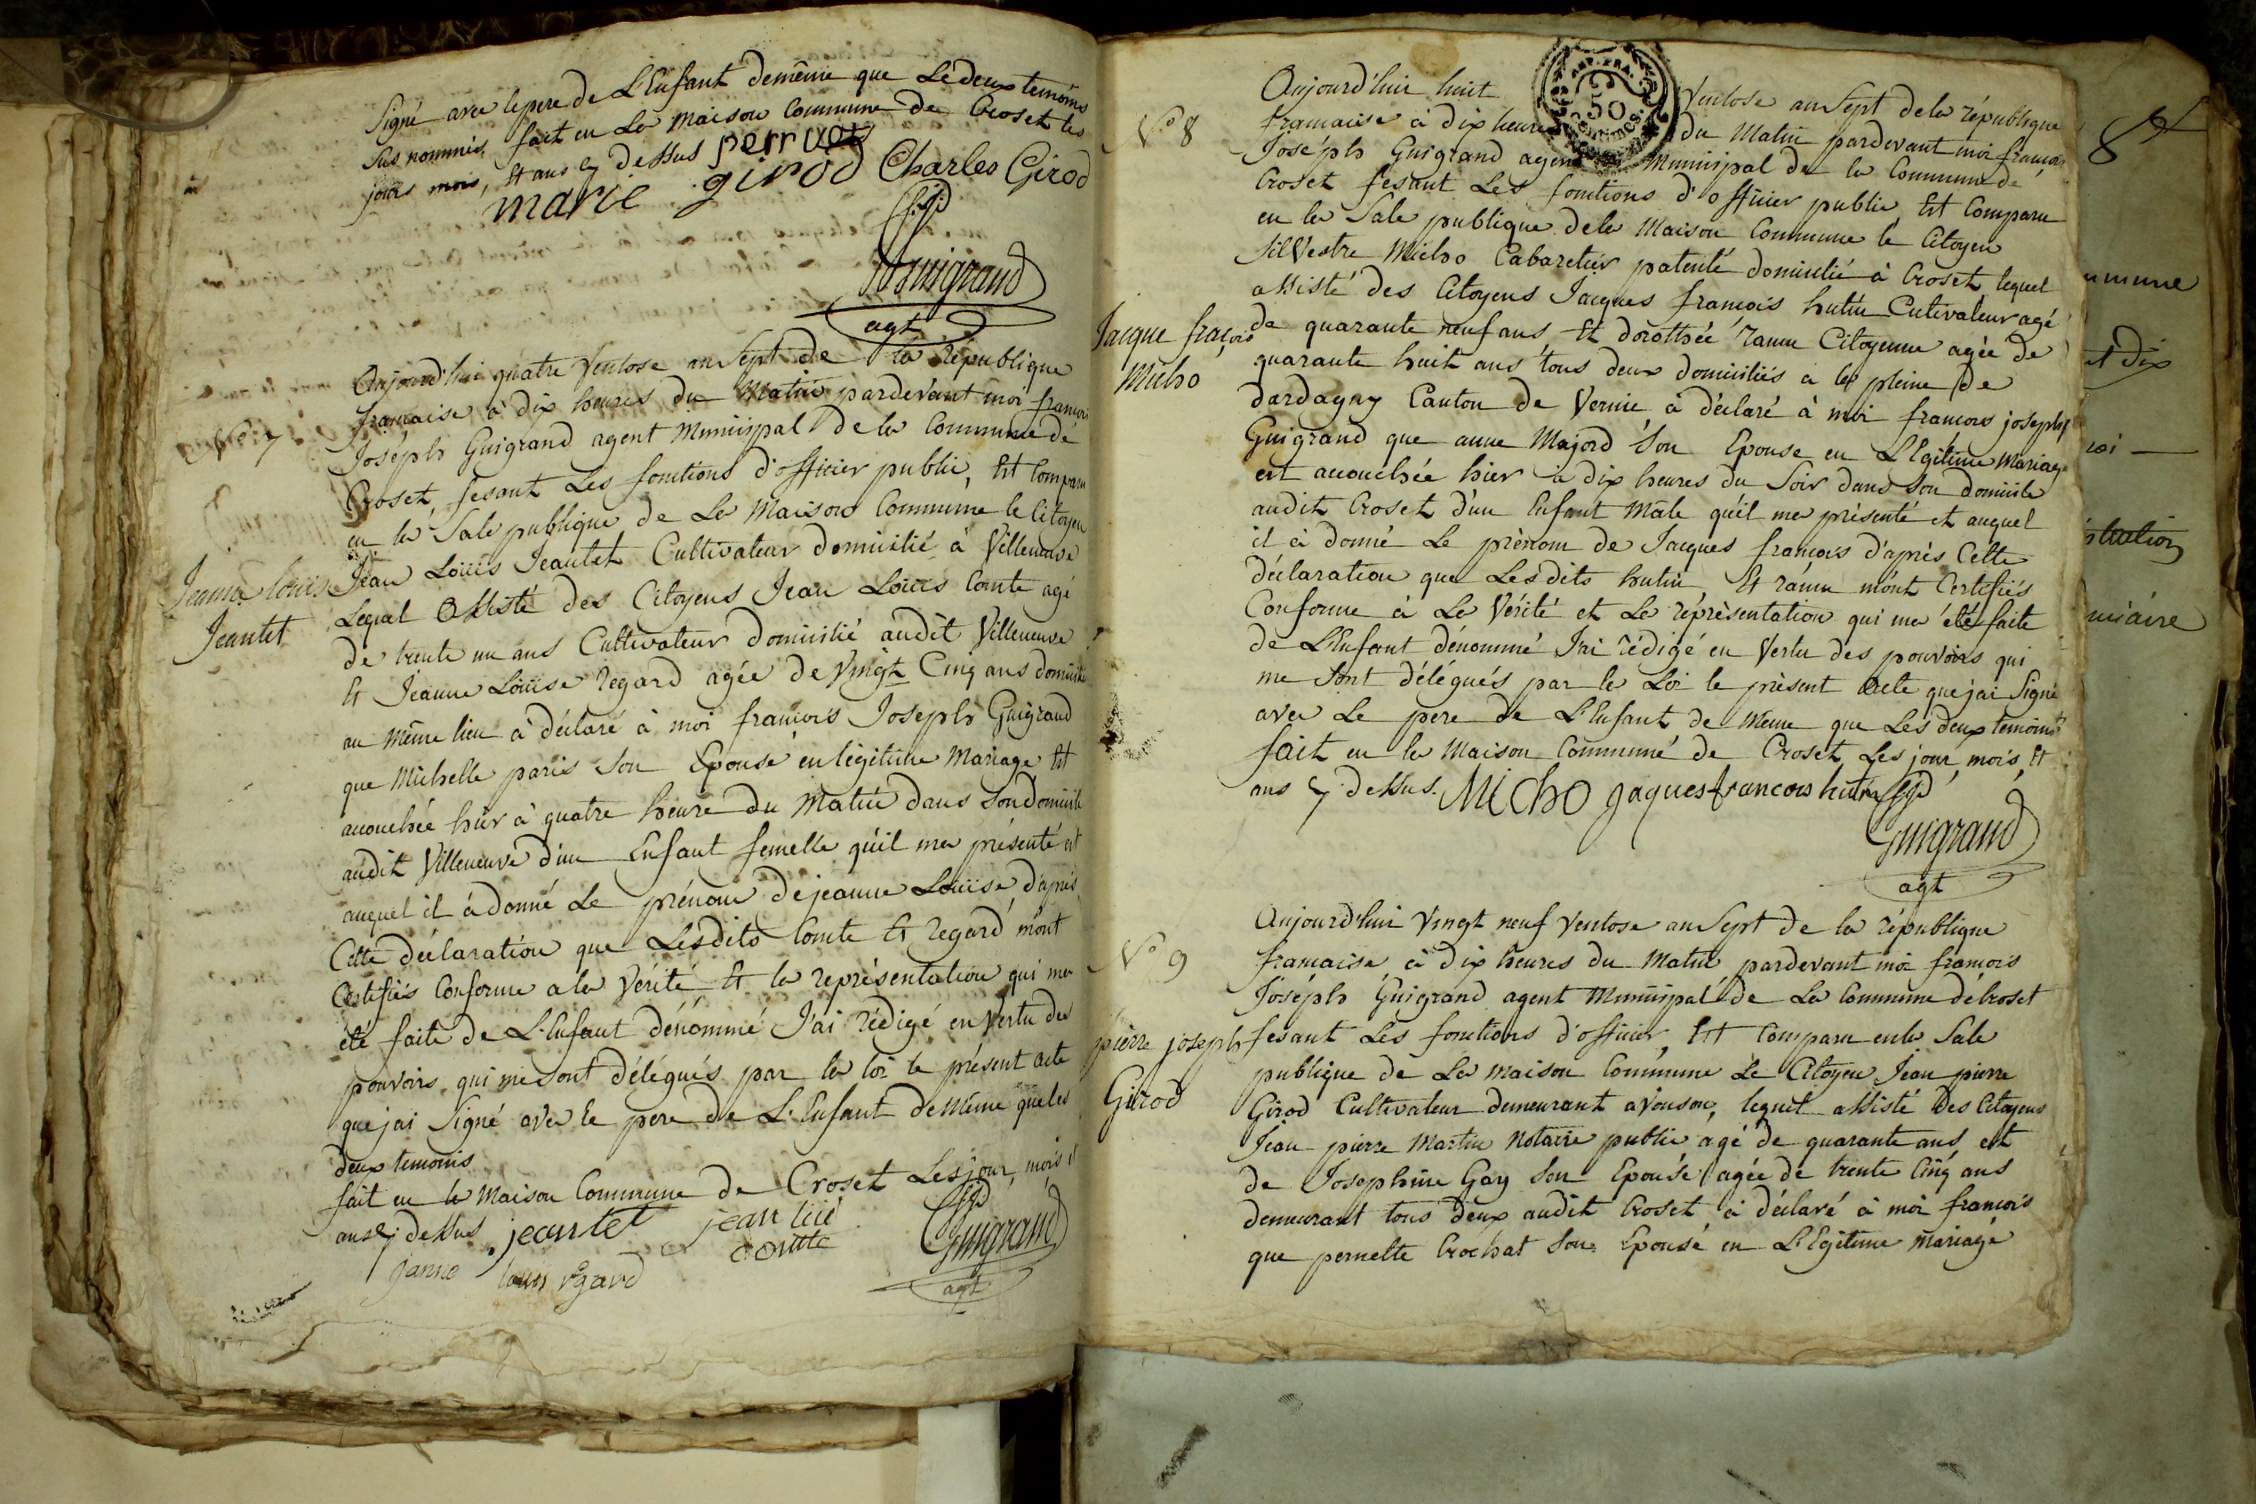 Signé avec le pere de L'Enfant demême que Les deux temoins
sus nommés, fait en La Maison Commune de Croset les
jours mois, Et ans cy dessus perruet
marie girod Charles Girod
fjgd
Guigrand
agt
N° 7
Jeanne Louise
Jeantet
Aujourd'hui quatre Ventose an Sept de la république
francaise à dix heures du Matin pardevant moi francois
Joséph Guigrand agent Municipal de la Commune de
Croset, fesant Les fonctions d'officier public, Est Comparu
en la Sale publique de La Maison Commune le Citoyen
Jean Loüis Jeantet Cultivateur domicilié à Villeneuve
Lequel Assisté des Citoyens Jean Loüis Comte agé
de trente un ans Cultivateur domicilié audit Villeneuve
Et Jeanne Loüise regard agée de Vingt Cinq ans domicilié
au même lieu à déclaré à moi francois Joseph Guigrand
que Michelle paris Son Epouse en légitime Mariage Est
accouchée hier à quatre heure du Matin dans Son domicile
audit Villeneuve d'un Enfant femelle qu'il ma présenté et
auquel il à donné Le prénom de jeanne Loüise, d'après
Cette déclaration que Lesdits Comte Et regard m'ont
Certifiés Conforme a la Vérité Et la représentation qui ma
été faite de L'Enfant dénommé J'ai rédigé en Vertu des
pouvoirs qui me sont délégués par la loi le présent acte
que jai Signé avec le pere de L'Enfant de Même que les
deux temoins
fait en la Maison Commune de Croset Les jour, mois et
ans cy dessus jeantet jean lui
comte
janne louis rgard
fjgd
Guigrand
agt
8
N° 8
Jacque fraçois
Micho
Aujourd'hui huit Ventose an Sept de la république
REP. FRA.
50
CENTIMES
francaise à dix heures du Matin pardevant moi francois
Joséph Guigrand agent Municipal de la Commune de
Croset fesant Les fonctions d'officier public Est Comparu
en la Sale publique de la Maison Commune le Citoyen
Silvestre Micho Cabaretier patenté domicilié à Croset lequel
assisté des Citoyens Jacques francois hutin Cutivateur agé
de quarante neuf ans, Et dorothée ramu Citoyenne agée de
quarante huit ans tous deux domiciliés à la pleine de
dardagny Canton de Vernie à déclaré à moi francois joseph
Guigrand que anne Majord Son Epouse en LEgitime Mariage
est accouchée hier à dix heures du Soir dans Son domicile
audit Croset d'un Enfant Mâle qu'il ma présenté et auquel
il à donné Le prénom de Jacques francois d'après Cette
déclaration que Lesdits hutin Et ramu m'ont Certifiés
Conforme à La Vérité et La représentation qui ma été faite
de L'Enfant dénommé J'ai rédigé en Vertu des pouvoirs qui
me Sont délégués par la Loi le présent acte que jai Signé
avec Le pere de L'Enfant de Meme que Les deux temoins
fait en la Maison Commune de Croset Les jour, mois, Et
ans cy dessus. MiCho jaques francois hutin fjgd
Guigrand
agt
N° 9
pierre joseph
Girod
Aujourd'hui Vingt neuf Ventose an Sept de la république
francaise à dix heures du Matin pardevant moi francois
Joséph Guigrand agent Municipal de La Commune de Croset
fesant Les fonctions d'officier, Est Comparu en la Sale
publique de La Maison Commune Le Citoyen Jean pierre
Girod Cultivateur demeurant a Vouson, lequel assisté Des Citoyens
Jean pierre Martin Notaire public agé de quarante ans et
de Josephine Gay Son Epouse agée de trente Cinq ans
demeurant tous deux audit Croset à déclaré à moi francois
que pernette Crochat Son Epouse en LEgitime Mariage